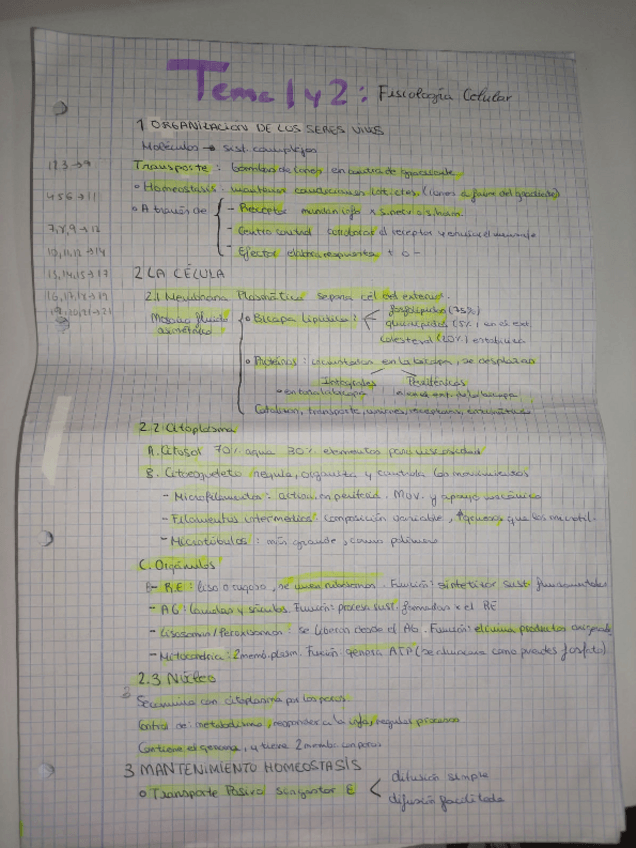 Tema 1 y 2: Fisiología Celular
1 ORGANIZACION DE LOS SERES VIVOS
Moléculas → sist. complejos
1,2,3→9
Transporte: bombas de iones en contra de gradiente
4 5 6→11
• Homeostasis:
• A través de
- Receptor
7,8,9→12
- Centro control el receptor y
10,11,12→14
- Efector respuesta + o -
13,14,15→17
2 LA CÉLULA
16,17,18→19
2.1 Membrana Plasmática separa cél del exterior.
19,20,21→21
Mosaico fluido asimétrico
• Bicapa lipídica:
fosfolípidos (75%)
glucolípidos (5%) en el ext
colesterol (20%)
• Proteínas: en la bicapa, se desplazan
Integrales
Periféricas
2.2. Citoplasma
A. Citosol 70% agua 30% elementos para viscosidad
B. Citoesqueleto regula, organiza y controla los movimientos
- Microfilamentos: actina en periferia. Mov. y apoyo mecánico
- Filamentos intermedios: composición variable, ↑ gruesos que los microfil.
- Microtúbulos: más grande, como polímero
C. Orgánulos
- R.E: liso o rugoso, se unen ribosomas. Función: sintetizar sust. fundamentales
- AG: Función: procesa sust. formadas x el RE
- Lisosomas/Peroxisomas: se liberan desde el AG. Función: elimina productos
- Mitocondria: 2 memb. plasm. Función genera ATP (se almacena como fosfato).
2.3 Núcleo
Se comunica con citoplasma por los poros.
Control de: metabolismo, responder a la info, regular procesos
Contiene el genoma, y tiene 2 memb. con poros
3 MANTENIMIENTO HOMEOSTASIS
• Transporte Pasivo sin gastar E
difusión simple
difusión facilitada